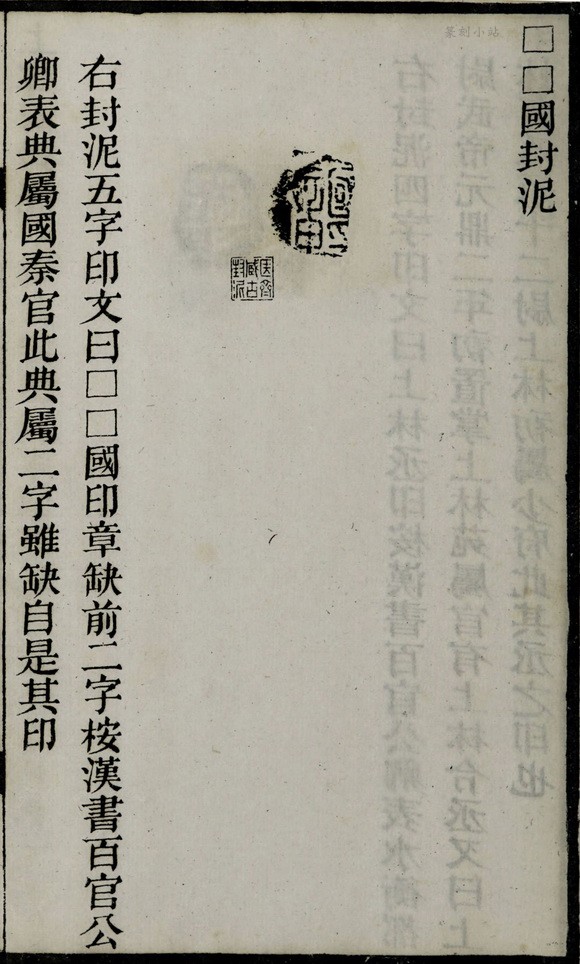 篆刻小站
□□國封泥
医斎
臧古
封泥
右封泥五字印文曰□□國印章缺前二字桉漢書百官公
卿表典屬國秦官此典屬二字雖缺自是其印